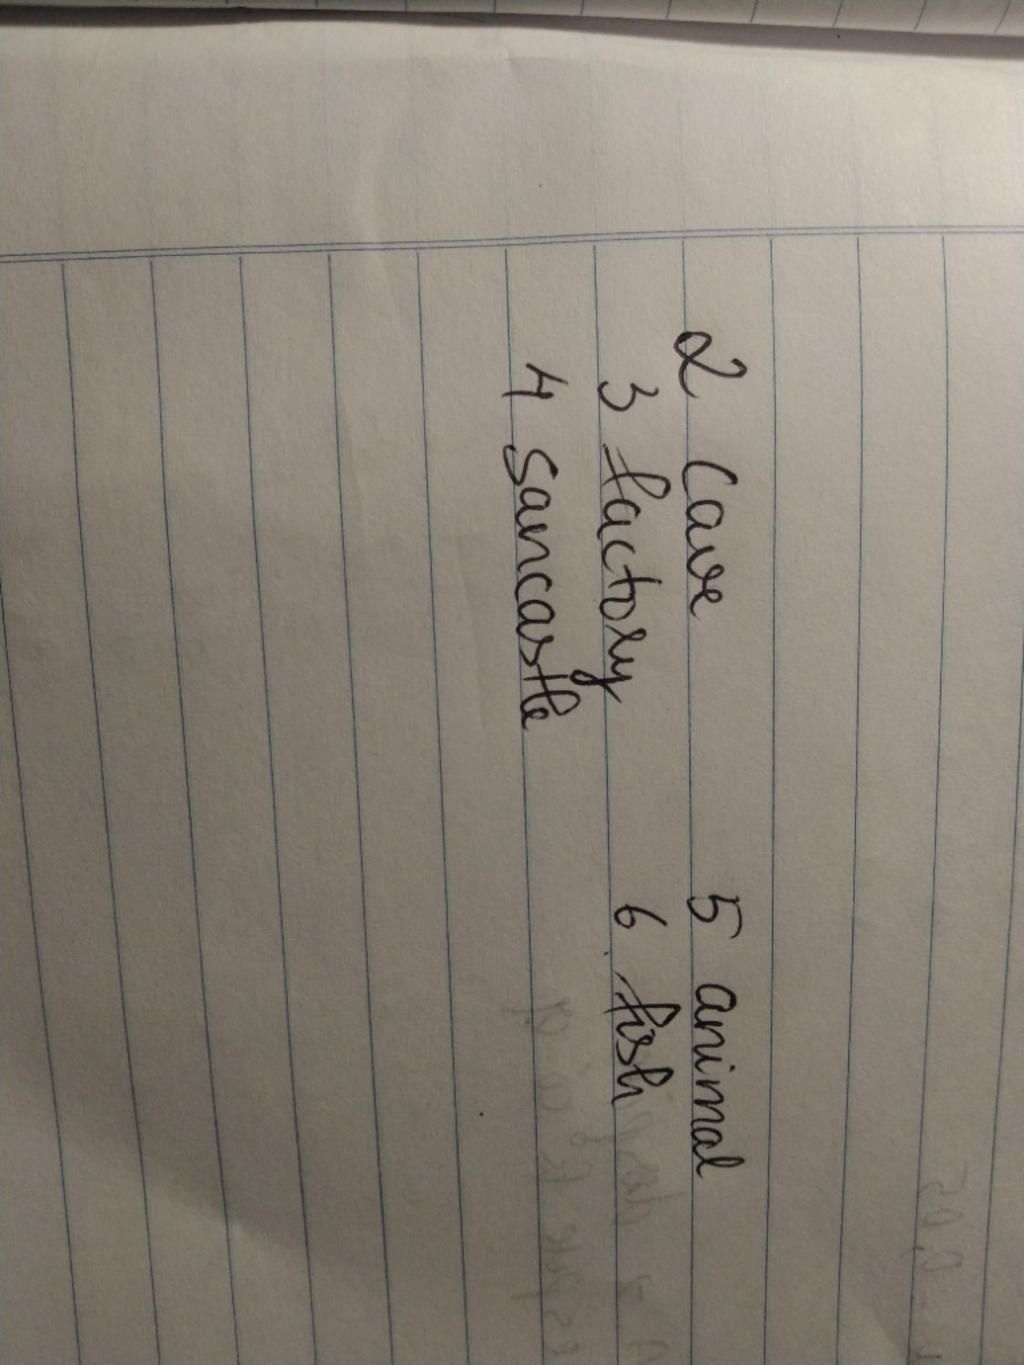 2 Cave 5 animal
3 factory 6 fish
4 Sancastle